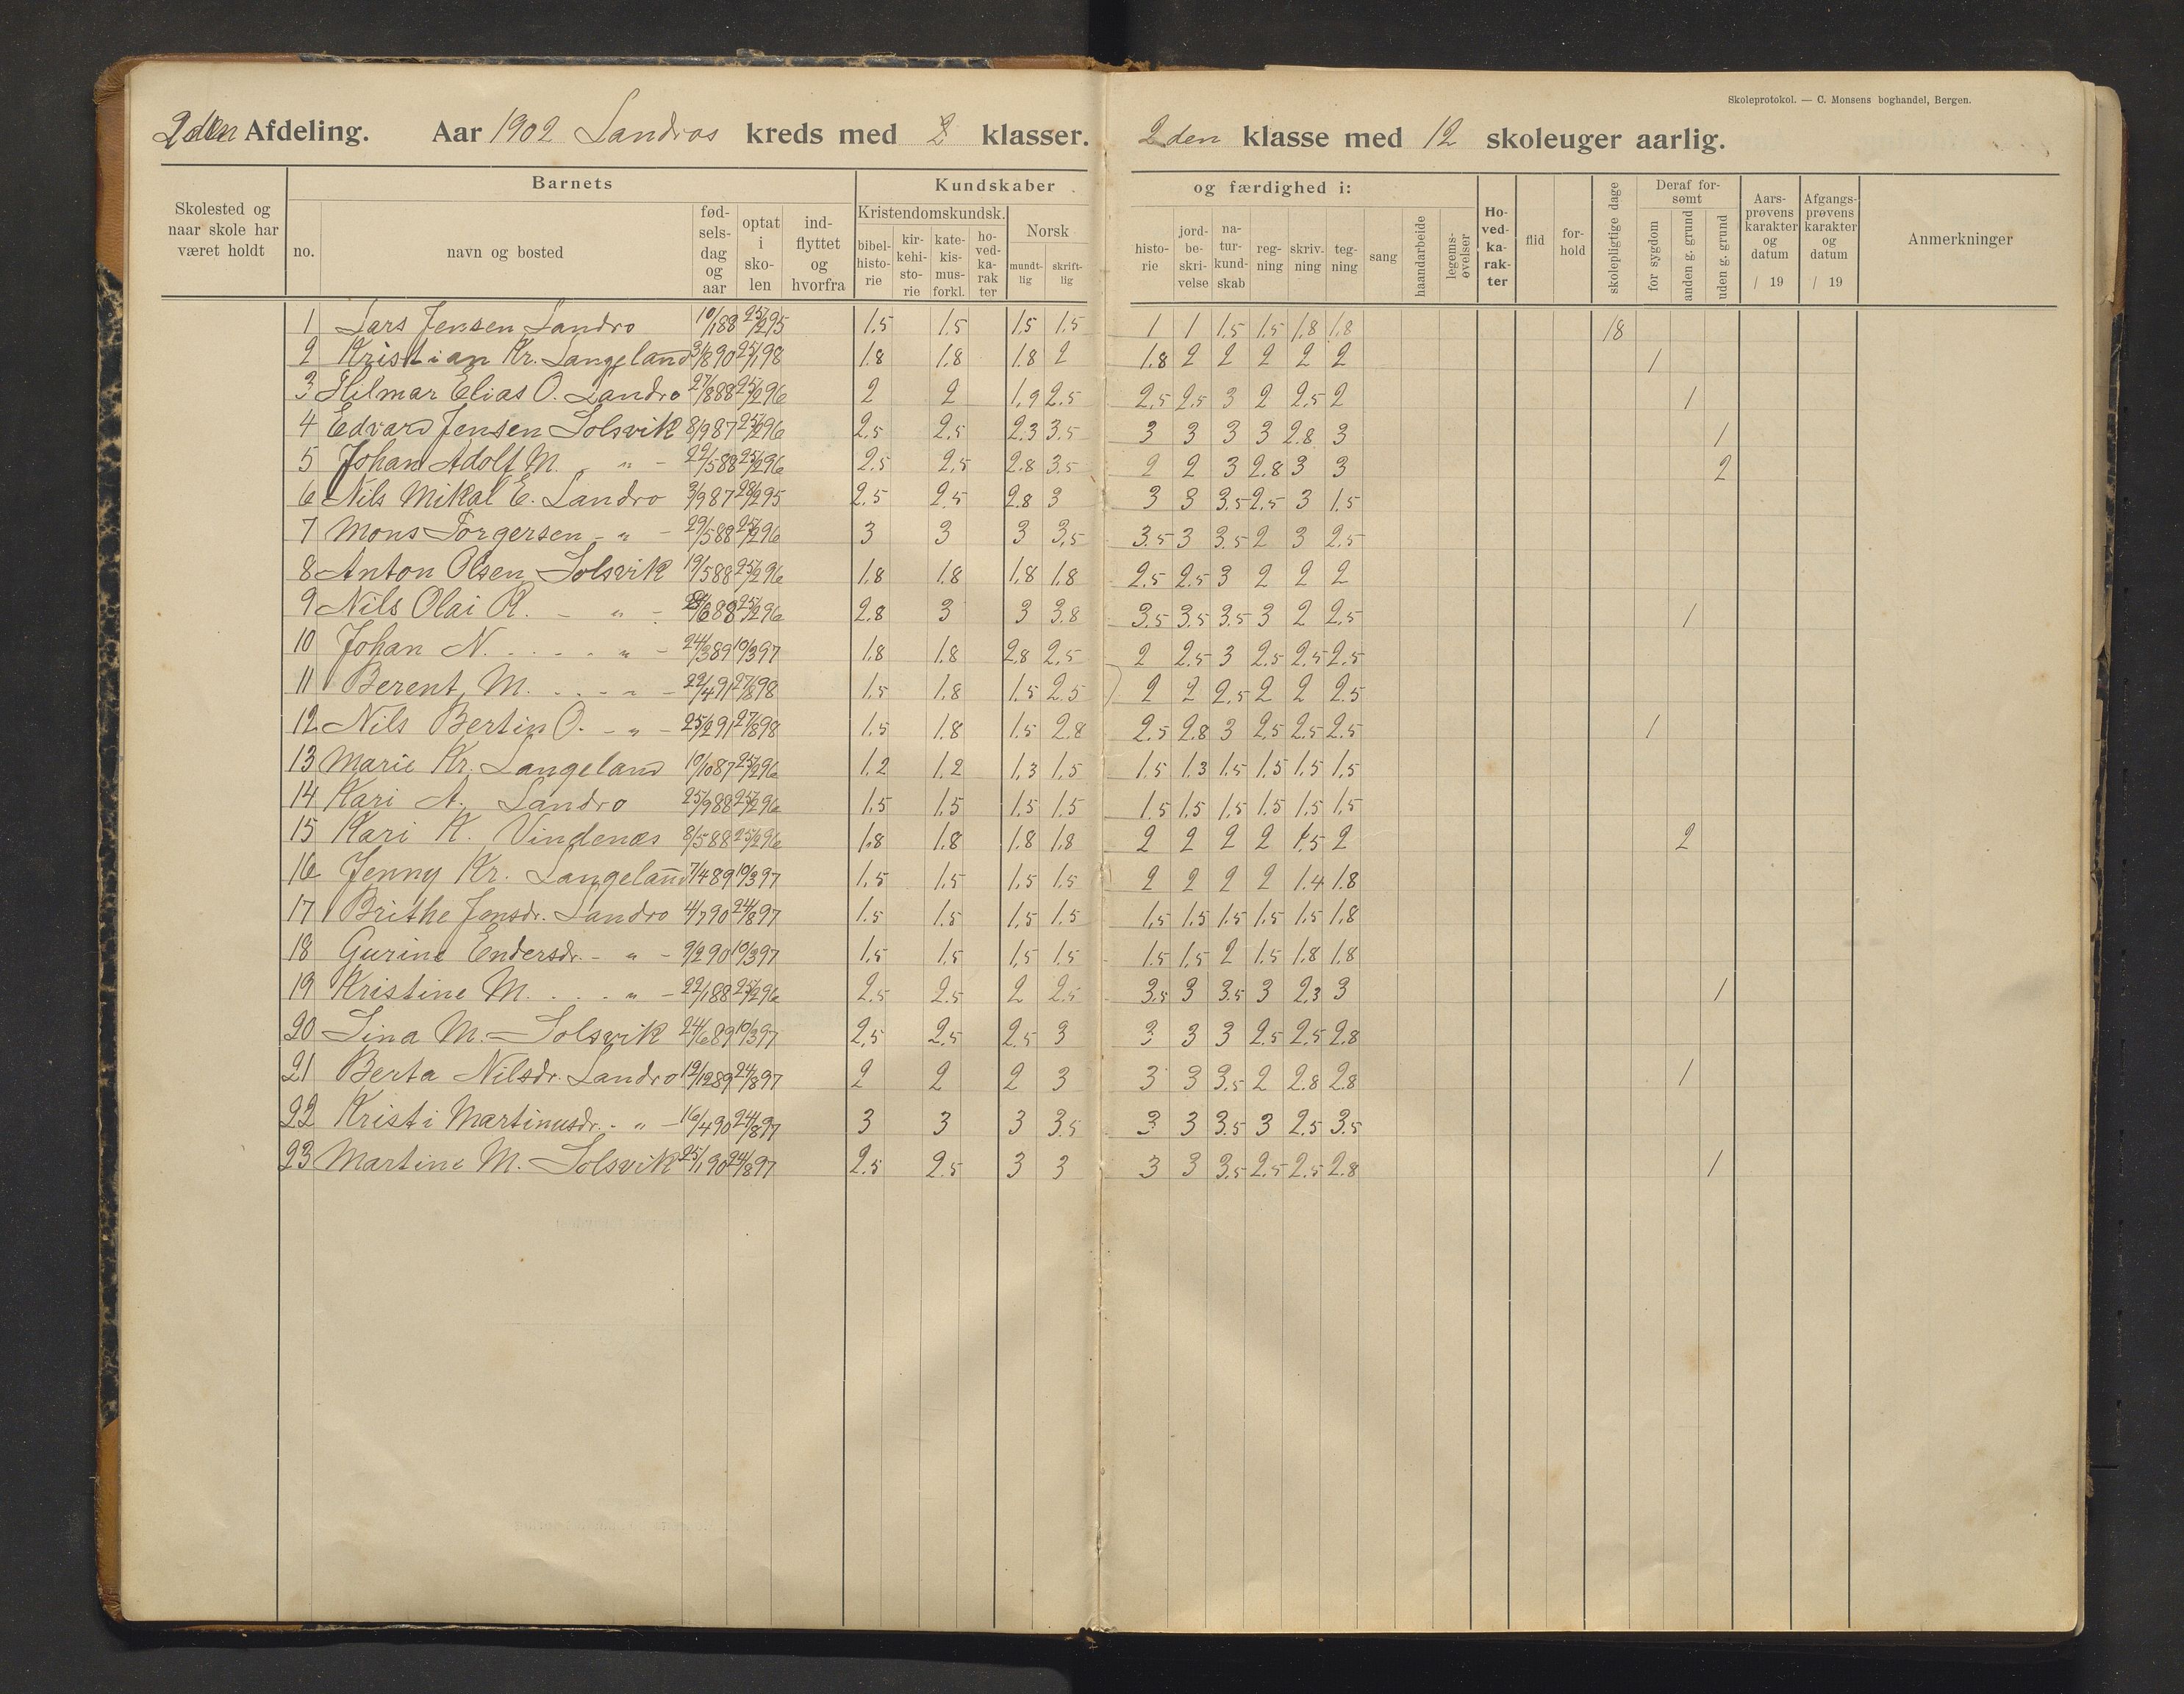 Skoleprotokol. — C. Monsens boghandel, Bergen.
2den Afdeling. Aar 1902 Landros kreds med 2 klasser. 2den klasse med 12 skoleuger aarlig.
Skolested og naar skole har været holdt
Barnets
no. navn og bosted fødselsdag og aar optat i skolen indflyttet og hvorfra
Kundskaber og færdighed i:
Kristendomskundsk. bibelhistorie kirkehistorie katekismusforkl. hovedkarakter
Norsk mundtlig skriftlig
historie jordbeskrivelse naturkundskab regning skrivning tegning sang haandarbeide legemsøvelser
Hovedkarakter flid forhold skolepligtige dage
Deraf forsømt for sygdom anden g. grund uden g. grund
Aarsprøvens karakter og datum / 19
Afgangsprøvens karakter og datum / 19
Anmerkninger
1 Lars Jensen Landro 10/1 88 25/2 95 1.5 1.5 1.5 1.5 1 1 1.5 1.5 1.8 1.8 18
2 Kristian Kr. Langeland 31/8 90 25/1 98 1.8 1.8 1.8 2 1.8 2 2 2 2 2 1
3 Hilmar Elias O. Landro 27/8 88 25/2 96 2 2 1.9 2.5 2.5 2.5 3 2 2.5 2 1
4 Edvard Jensen Solsvik 8/9 87 25/2 96 2.5 2.5 2.3 3.5 3 3 3 3 2.8 3 1
5 Johan Adolf M. - " - 22/5 88 25/2 96 2.5 2.5 2.8 3.5 2 2 3 2.8 3 3 2
6 Nils Mikal E. Landro 3/9 87 28/2 95 2.5 2.5 2.8 3 3 3 3.5 2.5 3 1.5
7 Mons Torgersen - " - 29/5 88 25/2 96 3 3 3 3.5 3.5 3 3.5 2 3 2.5
8 Anton Olsen Solsvik 19/5 88 25/2 96 1.8 1.8 1.8 1.8 2.5 2.5 3 2 2 2
9 Nils Olai K. - " - /6 88 25/2 96 2.8 3 3 3.8 3.5 3.5 3.5 3 2 2.5 1
10 Johan N. - " - 24/3 89 10/3 97 1.8 1.8 2.8 2.5 2 2.5 3 2.5 2.5 2.5
11 Berent M. - " - 22/4 91 27/8 98 1.5 1.8 1.5 2.5 2 2 2.5 2 2 2.5
12 Nils Bertin O. - " - 25/2 91 27/8 98 1.5 1.8 1.5 2.8 2.5 2.8 3 2.5 2.5 2.5 1
13 Marie Kr. Langeland 10/10 87 25/2 96 1.2 1.2 1.3 1.5 1.5 1.3 1.5 1.5 1.5 1.5
14 Kari A. Landro 25/9 88 25/2 96 1.5 1.5 1.5 1.5 1.5 1.5 1.5 1.5 1.5 1.5
15 Kari K. Vindenæs 8/5 88 25/2 96 1.8 1.8 1.8 1.8 2 2 2 2 1.5 2 2
16 Jenny Kr. Langeland 7/4 89 10/3 97 1.5 1.5 1.5 1.5 2 2 2 2 1.4 1.8
17 Brithe Jensdr. Landro 4/7 90 24/8 97 1.5 1.5 1.5 1.5 1.5 1.5 1.5 1.5 1.5 1.8
18 Gurine Endersdr. - " - 9/2 90 10/3 97 1.5 1.5 1.5 1.5 1.5 1.5 2 1.5 1.8 1.8
19 Kristine M. - " - 22/1 88 25/2 96 2.5 2.5 2 2.5 3.5 3 3.5 3 2.3 3 1
20 Lina M. Solsvik 24/6 89 10/3 97 2.5 2.5 2.5 3 3 3 3 2.5 2.5 2.8
21 Berta Nilsdr. Landro 12/12 89 24/8 97 2 2 2 3 3 3 3.5 2 2.8 2.8 1
22 Kristi Martinusdr. - " - 16/4 90 24/8 97 3 3 3 3.5 3 3 3.5 3 2.5 3.5
23 Martine M. Solsvik 25/1 90 24/8 97 2.5 2.5 3 3 3 3 3.5 2.5 2.5 2.8 1